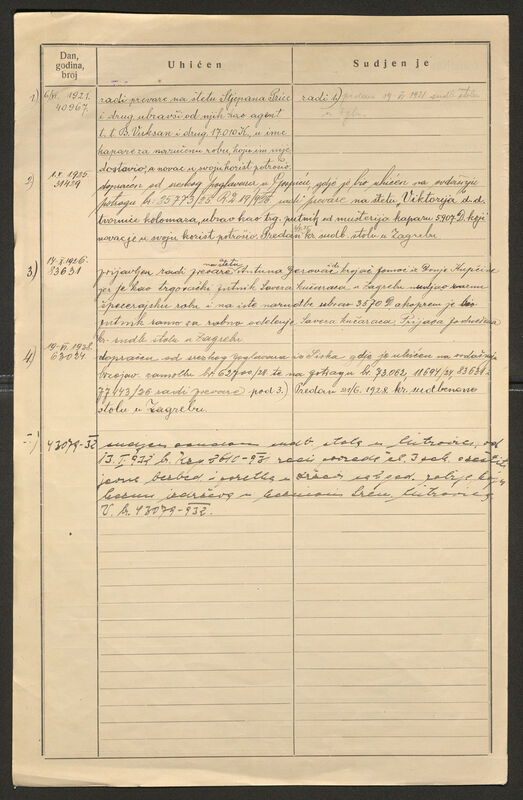 Dan, godina, broj
Uhićen
Sudjenje
1) 6/VI. 1921.
40967.
radi prevare na štetu Stjepana Price
i drug. ubravši od njih kao agent
t. t. B. Vuksan i drug 17.010 K, u ime
kapare za naručenu robu, koju im nije
dostavio, a novac u svoju korist potrošio.
radi 1) predan 19. VI 1921 sudb. stolu
u Zgbu.
2) 1.X. 1926.
31489
dopraćen od sreskog poglavara u Gospiću, gdje je bio uhićen na ovdašnju
potragu br. 25773/26 radi prevare na štetu, Viktorija d.d.
tvornice kolomara, ubrao kao trg. putnik od mušterija kaparu 5907 D. koji
novac je u svoju korist potrošio. Predan kr. sudb. stolu u Zagrebu
3) 83631
prijavljen radi prevare na štetu Antuna Gerovac iz Donje Kupčine
jer je kao trgovački putnik Savera Kučaraca u Zagrebu
špecerajsku robu i na iste narudbe ubrao 3570 D. akoprem je bio
putnik samo za robno odelenje Savera Kučaraca. Prijava podnešena
kr. sudb. stolu u Zagrebu
4) 19. VI. 1928.
63024
dopraćen od sreskog poglavara iz Siska gdje je uhićen na ovdašnju
brzojav. zamolbu br. 62700/28. te na potragu br. 73.062, 11694/27, 83631
77443/26 radi prevare pod 3.) Predan 21/6. 1928. kr. sudbenom
stolu u Zagrebu.
43079-32
sudjen osnovom sudb. stola u Mitrovici, od
13. I. 932 br. 2610-931 radi
u Mitrovici
V. br. 43079-932.